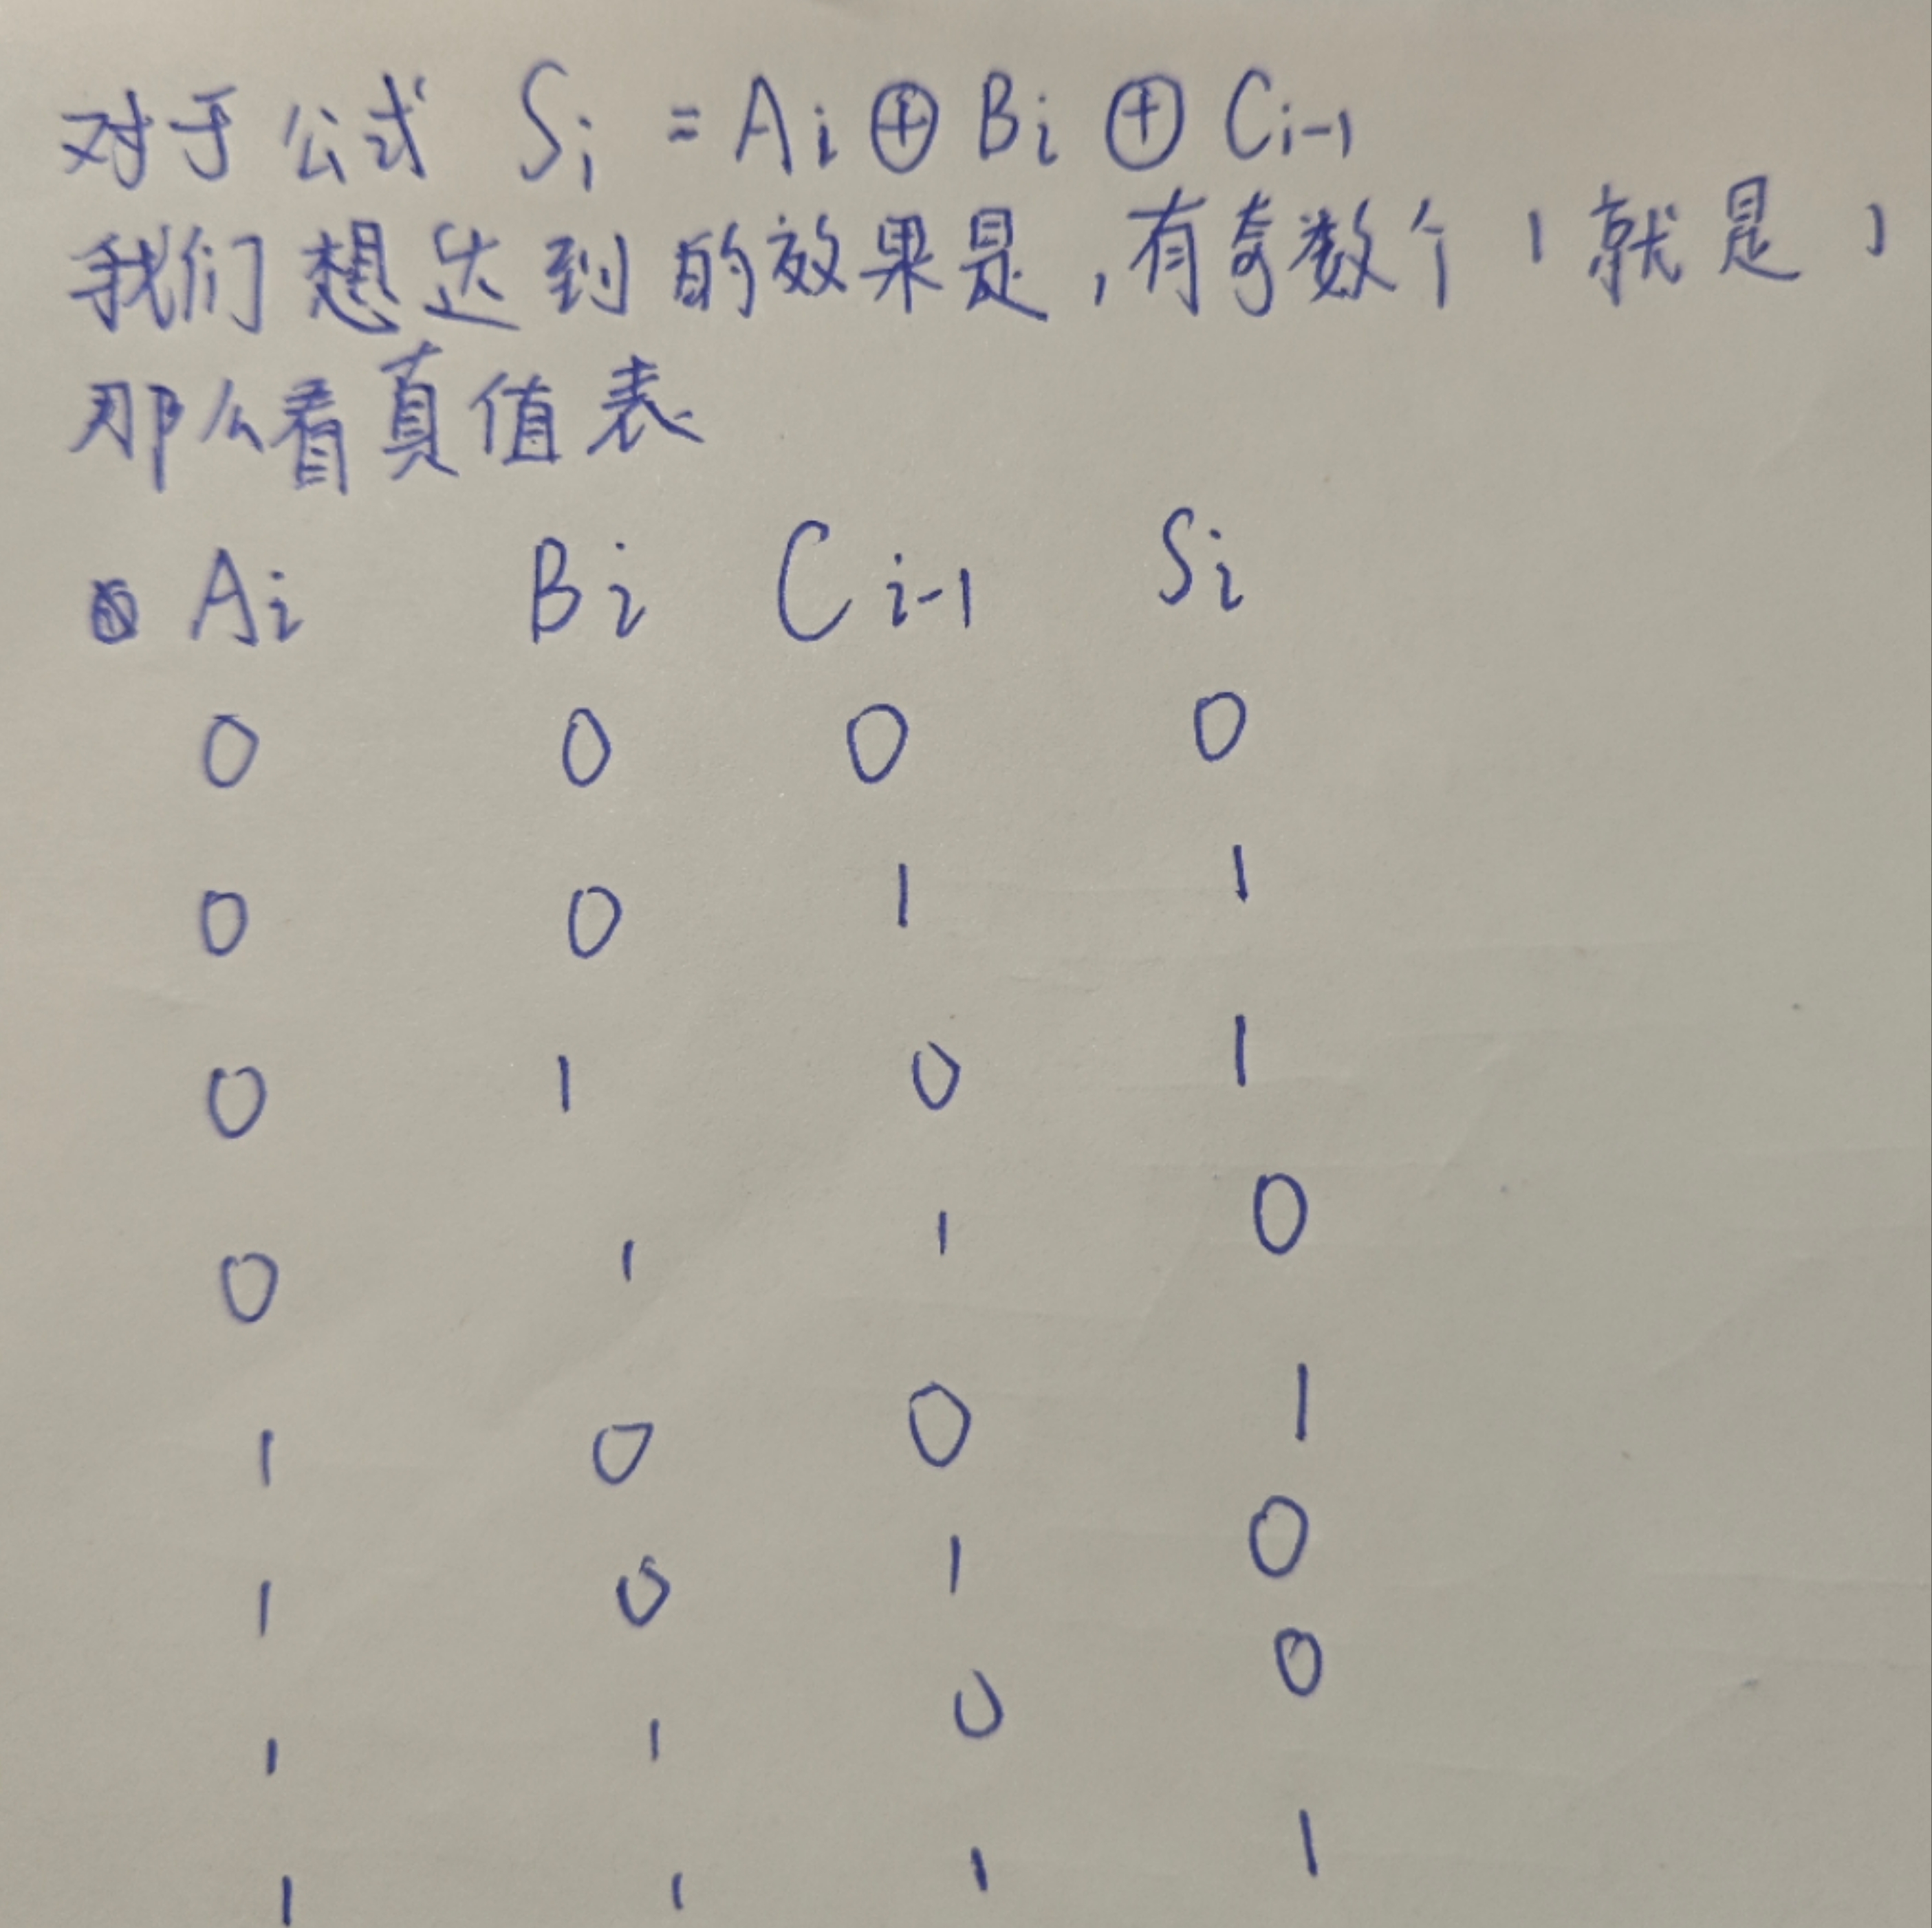 对于公式 Si = Ai ⊕ Bi ⊕ Ci-1
我们想达到的效果是,有奇数个1就是1
那么看真值表
Ai Bi Ci-1 Si
0 0 0 0
0 0 1 1
0 1 0 1
0 1 1 0
1 0 0 1
1 0 1 0
1 1 0 0
1 1 1 1